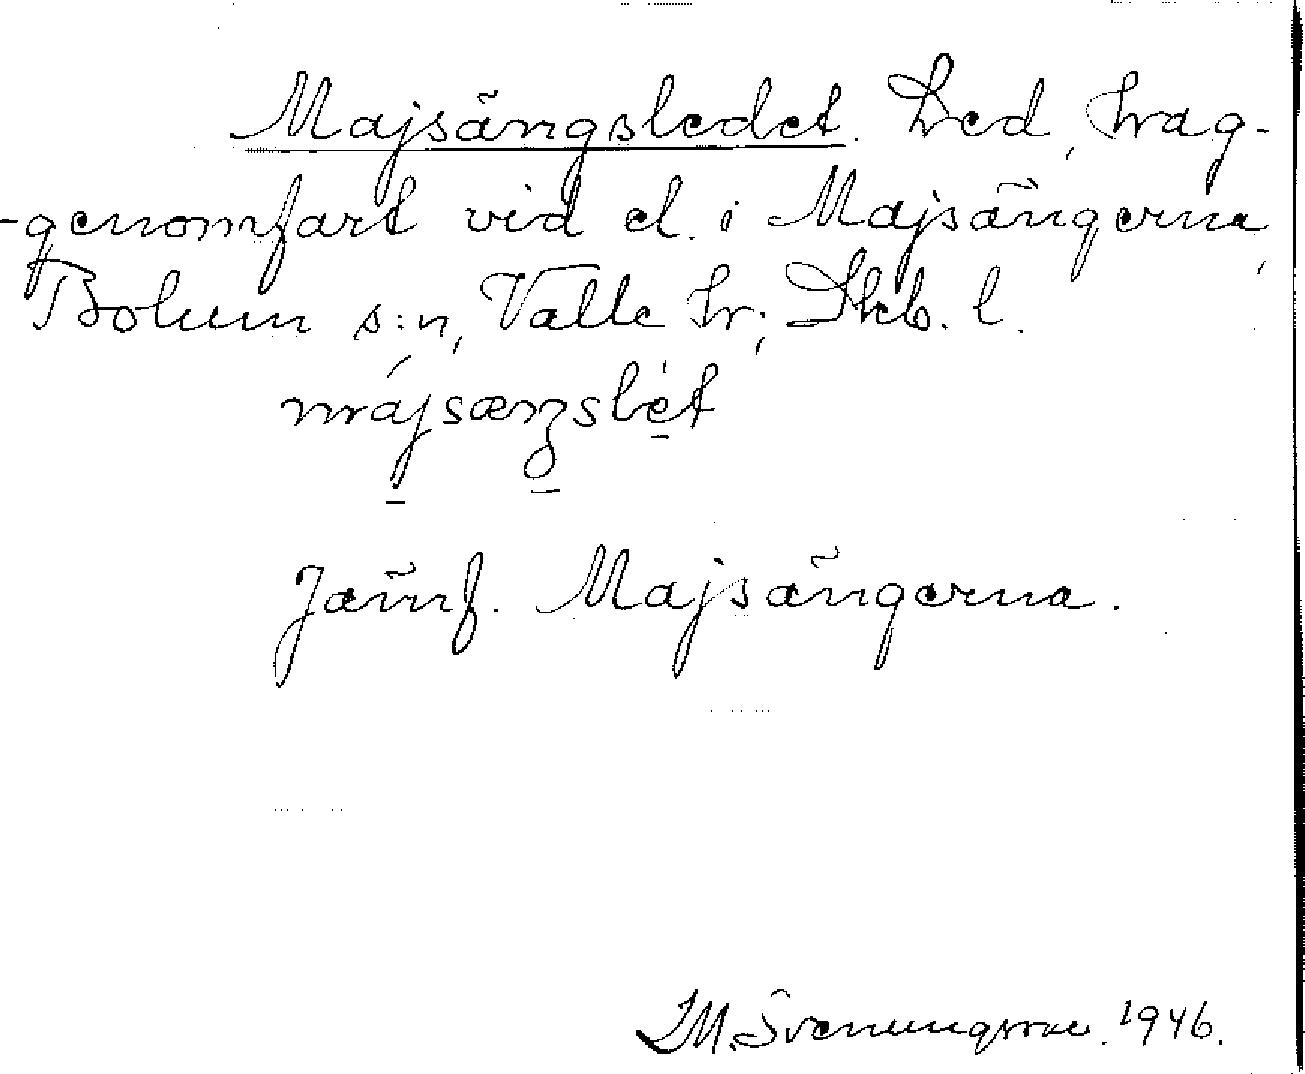 Majsängsledet. Led, hag-
-genomfart vid el. i Majsängerna,
Bolum s:n, Valle hr; Skb. l.
májsæŋslèt
Jämf. Majsängerna.
I.M. Svenungsson. 1946.